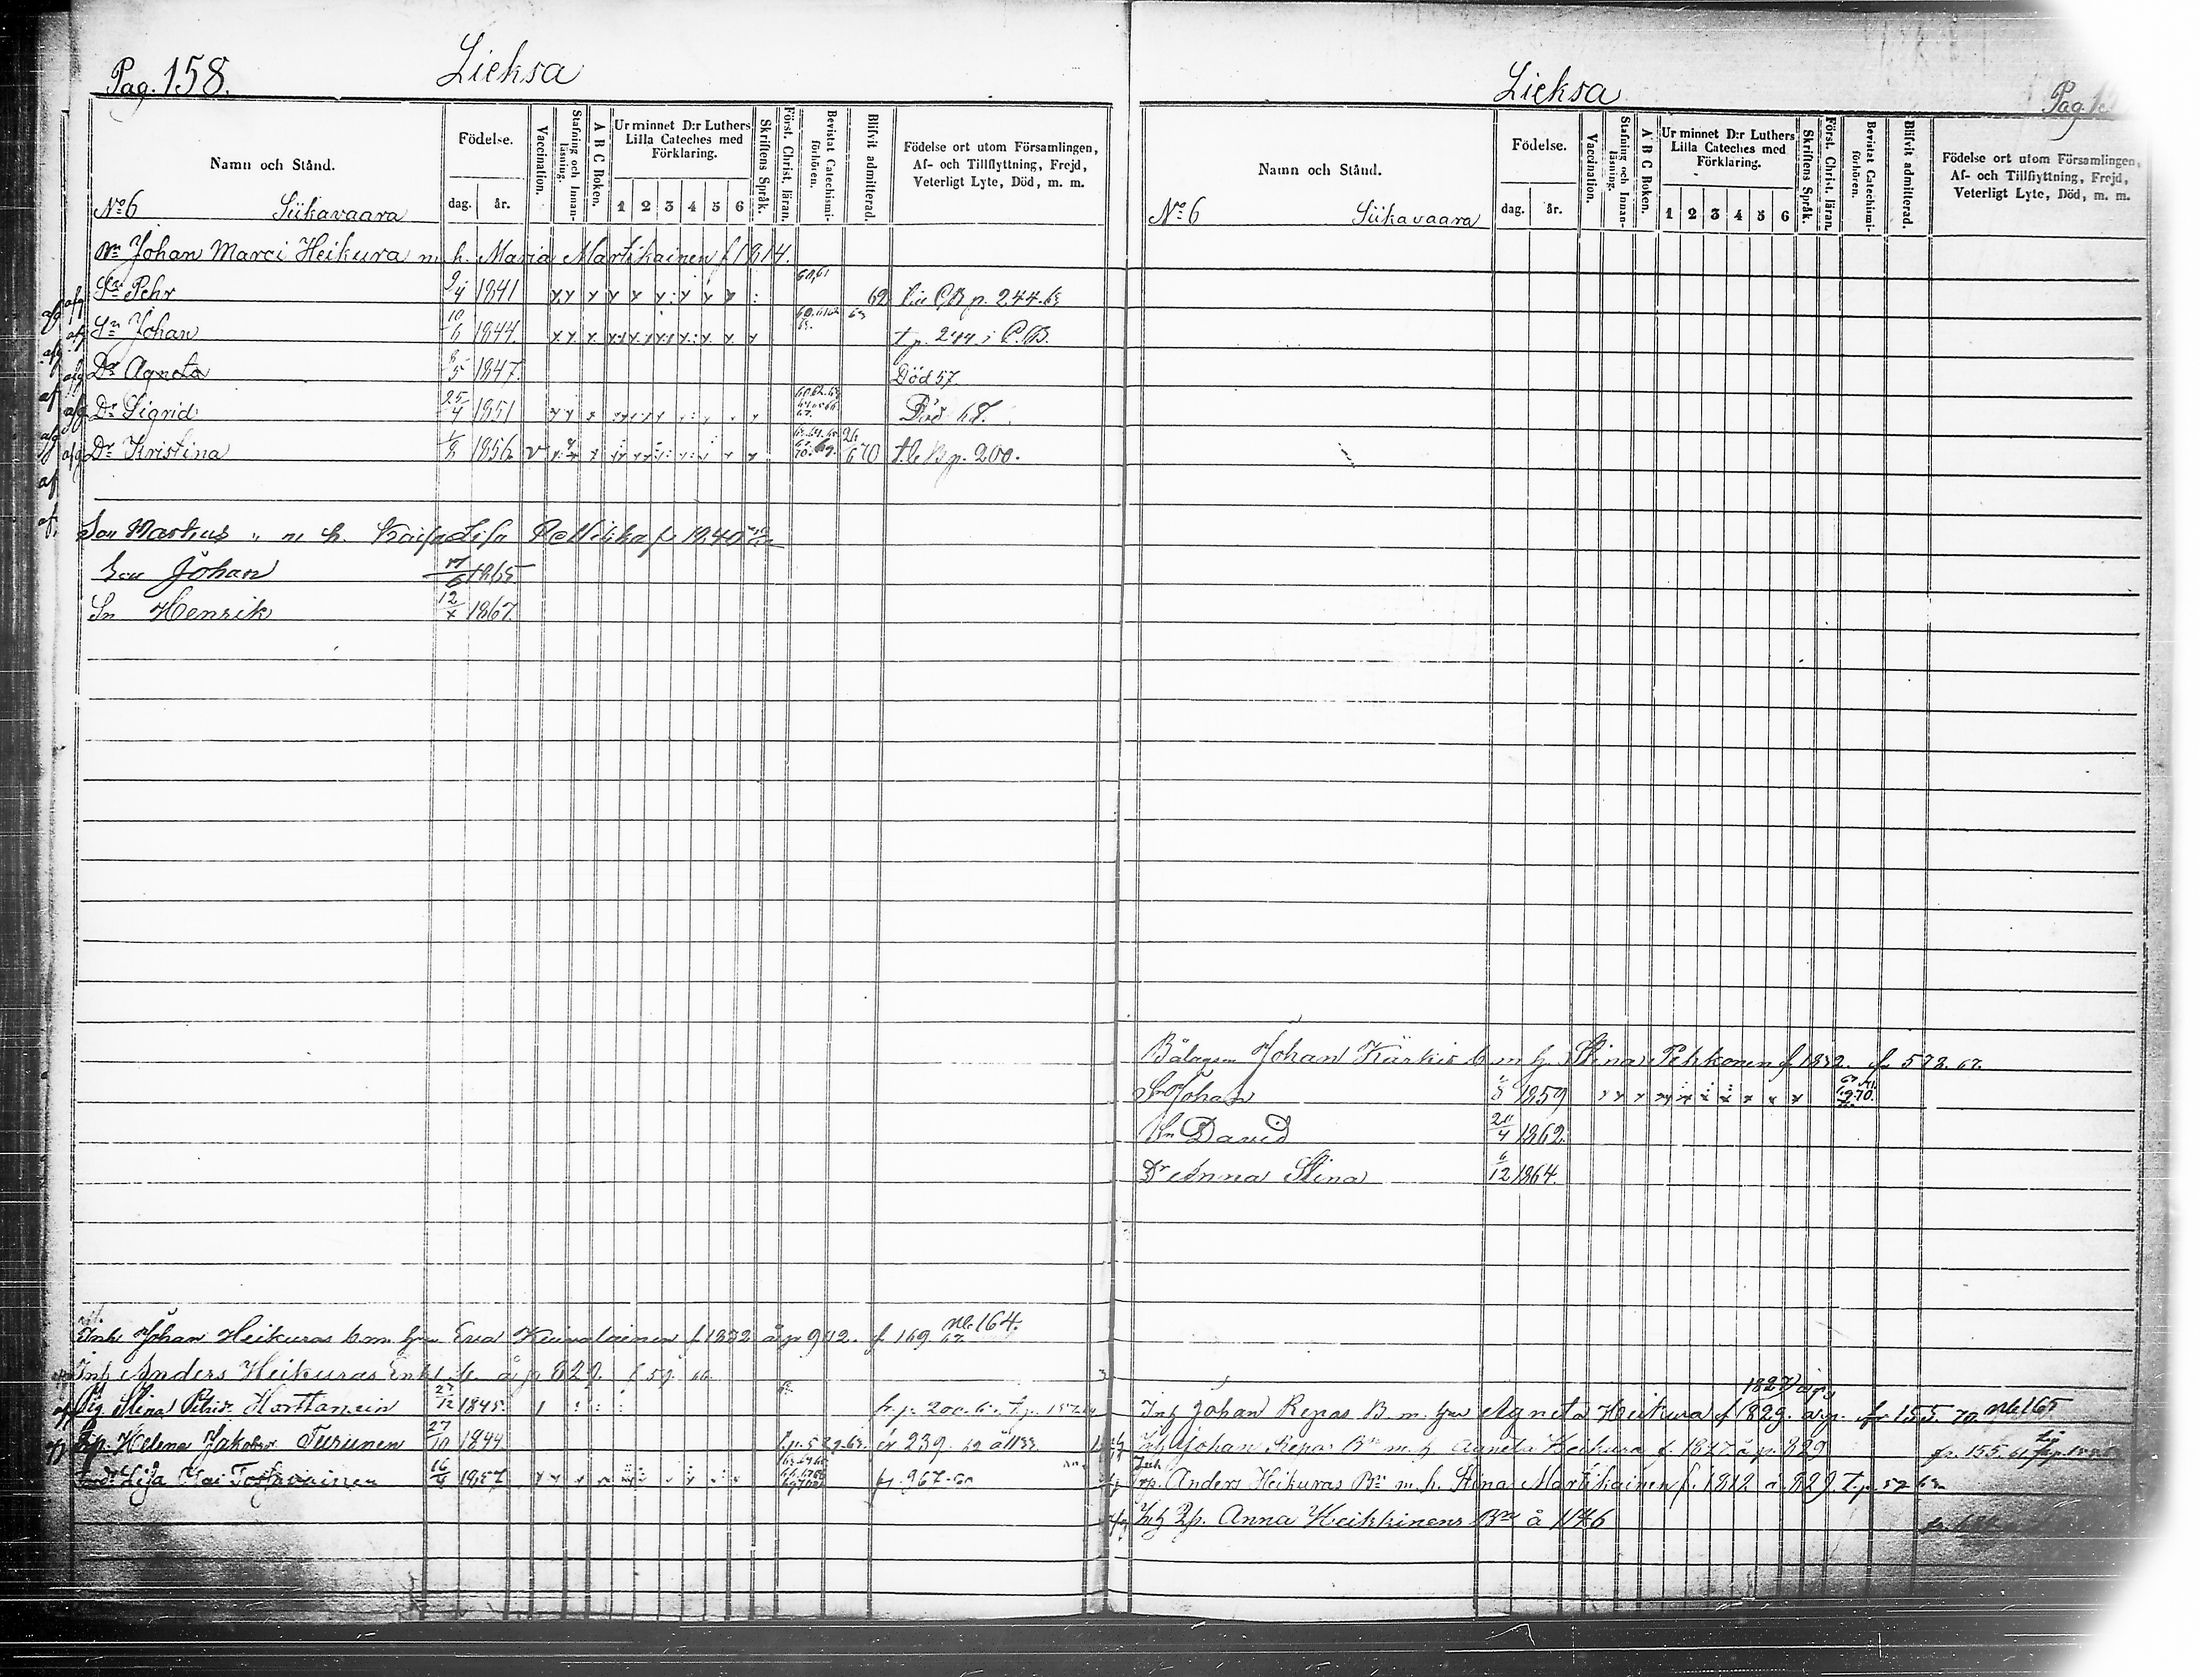 Pag. 158.
Lieksa
Namn och Stånd.
Födelse.
dag. år.
Vaccination.
Stafning och Innanläsning.
A B C Boken.
Ur minnet D:r Luthers Lilla Cateches med Förklaring.
1 2 3 4 5 6
Skriftens Språk.
Först. Christ. läran.
Bevistat Catechismi-förhören.
Blifvit admitterad.
Födelse ort utom Församlingen, Af- och Tillflyttning, Frejd, Veterligt Lyte, Död, m. m.
No 6 Siikavaara
Johan Marci Heikura m. h. Maria Martikainen f 1814.
Sn Pehr 9/4 1841 60,61 62 p. 244.
Sn Johan 10/6 1844. t p. 244 i C.B.
Dr Agneta 8/5 1847. Död 57.
Dr Sigrid 25/4 1851 Död 68.
Dr Kristina 1/8 1856 v 70 p. 200.
Son Markus " m h. Kaisa Lisa Pellikka f. 1840
Son Johan 1865
Sn Henrik 12/ 1867.
Inh Johan Heikuras b. m. h. Eva Kuivalainen f 1832 å p 912. f 169 Nb. 164.
Inh Anders Heikuras Enk å p 829. f 59. 66.
Pig Stina Petrid: Horttanain 27/12 1845. fr p. 200.
Helena Jakobsd. Turunen 27/10 1844 239.
Lisa Toskavainen 16/4 1857 fr. 967.
Lieksa
Pag.
Namn och Stånd.
Födelse.
dag. år.
Vaccination.
Stafning och Innanläsning.
A B C Boken.
Ur minnet D:r Luthers Lilla Cateches med Förklaring.
1 2 3 4 5 6
Skriftens Språk.
Först. Christ. läran.
Bevistat Catechismi-förhören.
Blifvit admitterad.
Födelse ort utom Församlingen, Af- och Tillflyttning, Frejd, Veterligt Lyte, Död, m. m.
No 6 Siikavaara
Bolagsm Johan Kärkis b m h. Stina Pehkonen f 1832. fr 572. 67.
Sn Johan 1/8 1859
Sn David 20/4 1862.
Dr Anna Stina 6/12 1864.
Inh Johan Repos B m. h. Agneta Heikura f 829. å p. fr 155. 70. Nb. 165
1827
Inh Johan Repos Bn m. h. Agneta Heikura f. 1827 å p. 829 fr. 155.
Anders Heikuras Bn m. h. Stina Martikainen f. 1812 å 829. t. p. 59
Inh Anna Heikkinens Bn å 1146